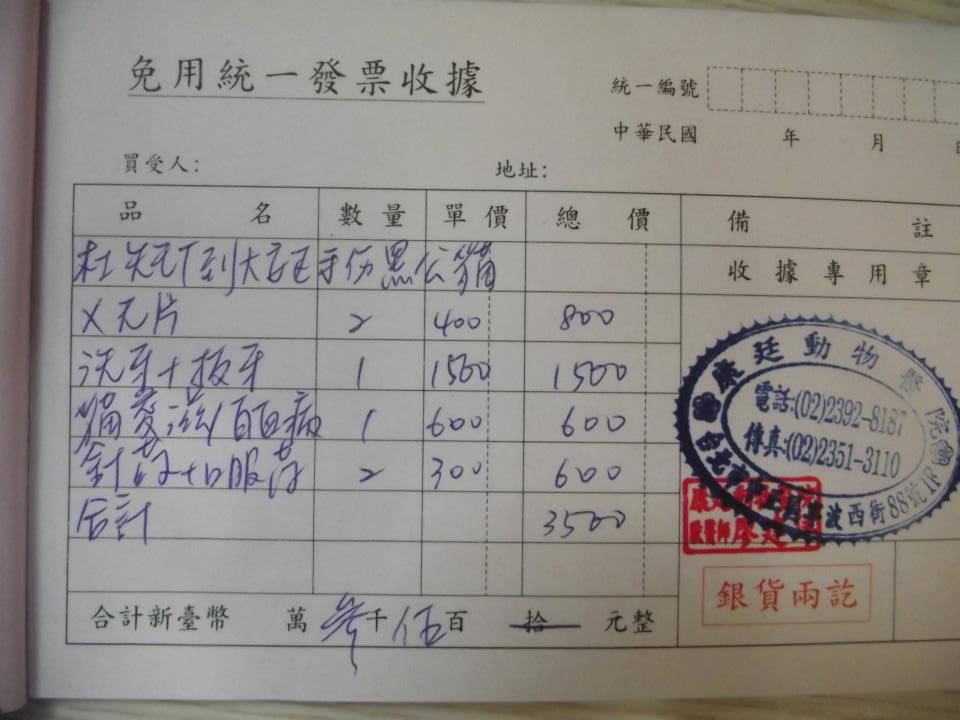 免用統一發票收據
統一編號
中華民國 年 月
買受人: 地址:
品名 數量 單價 總價 備註
黑公貓
收據專用章
X光片 2 400 800
洗牙+拔牙 1 1500 1500
貓愛滋/白血病 1 600 600
針藥+口服藥 2 300 600
合計 3500
合計新臺幣 萬 參千 伍百 拾 元整
康廷動物醫院
電話:(02)2392-8187
傳真:(02)2351-3110
台北市中正區寧波西街88號1F
銀貨兩訖